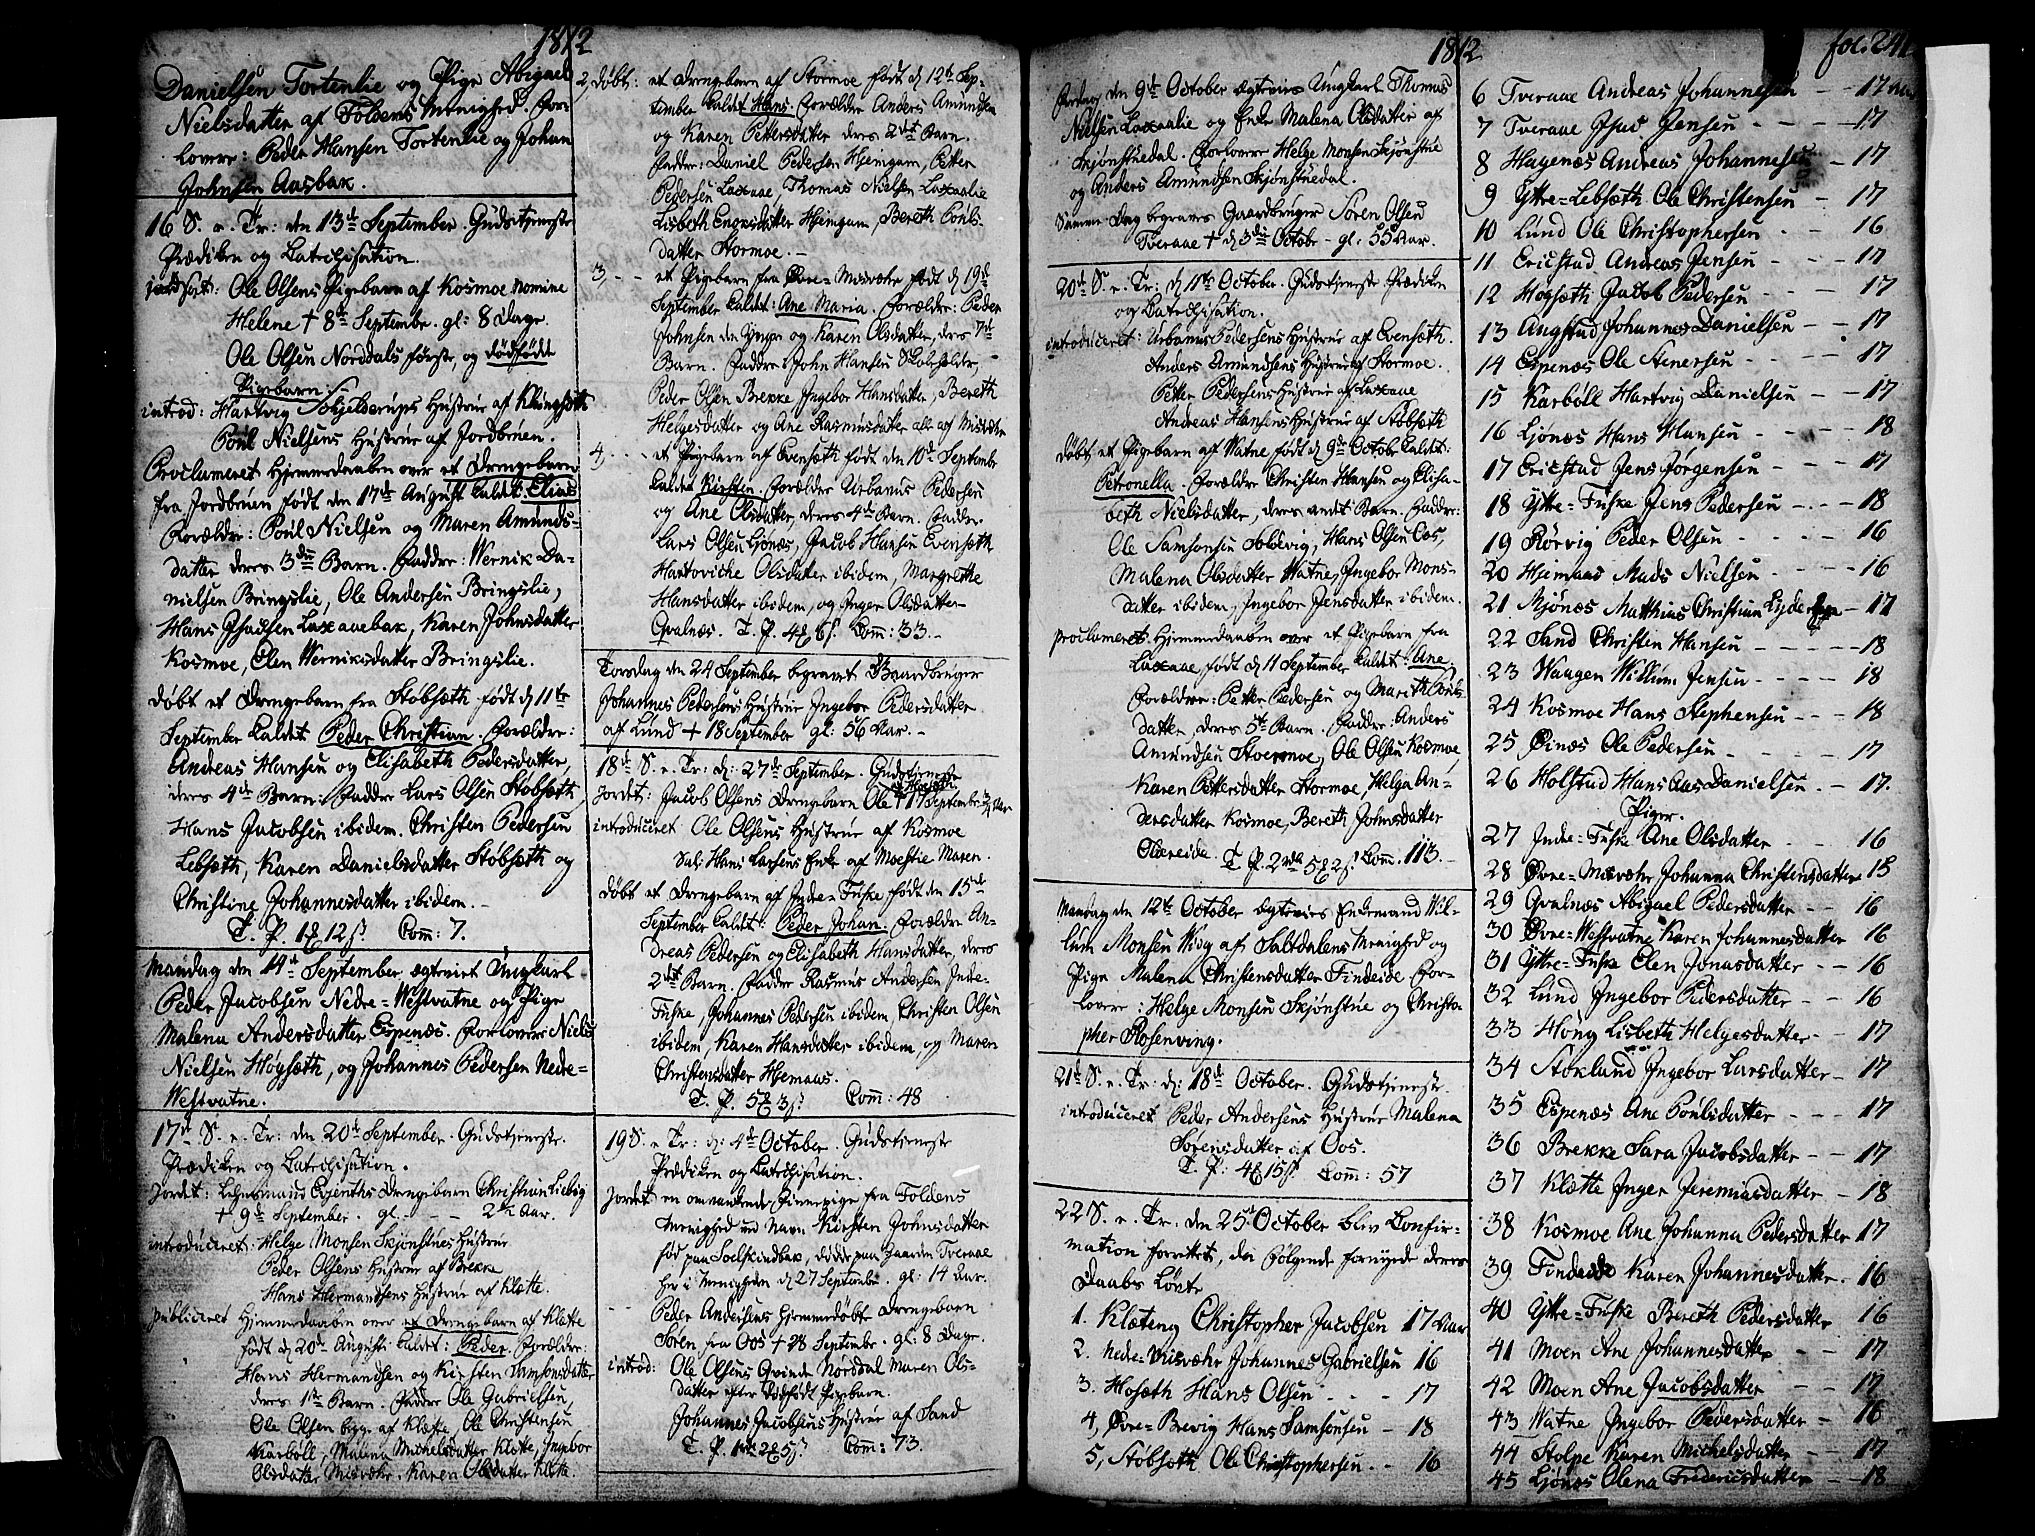 1812
Danielsen Tortenlie og Pige Abigael
Nielsdatter af Foldens Menighed. For-
lovere: Peder Hansen Tortenlie og Johan
Johnsen Aasbak.
16 S. e. Tr: den 13de September. Gudstjeneste
Prædiken og Catechisation.
jordfæst: Ole Olsens Pigebarn af Kosmoe nomine
Helene † 8de Septembr. gl: 8 Dage.
Ole Olsen Norddals første, og dødfødte
Pigebarn.
introd: Hartvig Schjelderups Hustrue af Klungsæth
Poul Nielsens Hustrue af Jordbruen.
Proclameret Hjemmedaaben over et Drengebarn
fra Jordbruen født den 17de August kaldet: Elias
Forældre: Poul Nielsen og Maren Amunds-
datter deres 3die Barn. Faddre: Wernik Da-
nielsen Bringslie, Ole Andersen Bringslie,
Hans Isaksen Laxaaebak, Karen Johnsdatter
Kosmoe, Elen Werniksdatter Bringslie.
døbt et Drengebarn fra Støbsæth født d 11te
September kaldet Peder Christian. Forældre:
Andreas Hansen og Elisabeth Pedersdatter,
deres 4de Barn: Faddre Lars Olsen Støbsæth
Hans Jacobsen ibidem. Christen Pedersen
Lebsæth, Karen Danielsdatter Støbsæth og
Christine Johannesdatter ibidem.
T. P. 12 ß Com: 7.
Mandag den 14de September ægteviet Ungkarl
Peder Jacobsen Nedre=Westvatne og Pige
Malena Andersdatter Espenæs. Forlovere Niels
Nielsen Høgsæth, og Johannes Pedersen Nedre=
Westvatne.
17de S. e. Tr: den 20de September. Gudstjeneste.
Prædiken og Catechisation.
Jordet: Lehnsmand Evjenths Drengebarn Christian Liebig
† 9de September. gl. - - - 2 1/2 Aar.
introduceret: Helge Monsen Skjønstues Hustrue
Peder Olsens Hustrue af Brekke
Hans Hermandsens Hustrue af Kletté.
publiceret Hjemmedaaben over et Drengebarn af Klætte
født d 20de Augusti kaldet: Peder. Forældre:
Hans Hermandsen og Kirsten Samsonsdatter
deres 1ste Barn. Faddre Ole Gabrielsen,
Ole Olsen byg. af Kletté, Ole Christensen
Karbøll, Malena Michelsdatter Klette, Ingebor
Olsdatter Misvæhr. Karen Olsdatter Klette.
2, Døbt: et Drengebarn af Stormoe født d 12te Sep-
tember kaldet Hans. Forældre Anders Amundsen
og Karen Pettersdatter deres 2det Barn.
Faddre: Daniel Pedersen Hjemgam, Petter
Pedersen Laxaae, Thomas Nielsen Laxaalie
Lisbeth Enoxsdatter Hjemgam, Bereth Pouls-
datter Stormoe.
3, - - et Pigebarn fra Øvre=Misvæhr født d 19de
September kaldet: Ane Maria. Forældre: Peder
Johnsen den Yngre og Karen Olsdatter, deres 7de
Barn. Faddre: John Hansen Skoleholder,
Peder Olsen Brekke, Ingebor Hansdatter, Bereth
Helgesdatter og Ane Rasmusdatter alle af Misvæhr
4, - - - et Pigebarn af Evensæth født den 10de Septembr
kaldet Kirsten. Forældre Urbanus Pedersen
og Ane Olsdatter, deres 4de Barn. Faddre.
Lars Olsen Ljønæs, Jacob Hansen Evensæth
Hartoviche Olsdatter ibidem, Margrethe
Hansdatter ibidem, og Inger Olsdatter
Qvalnæs. T. P. Com: 33.
Torsdag den 24 September begravet Gaardbruger
Johannes Pedersens Hustrue Ingebor Pedersdatter
af Lund † 18 September gl: 56 Aar.
18de S. e. Tr: d: 27de September. Gudstjeneste
Jordet: Jacob Olsens Drengebarn Ole † 17 Septembr:
introduceret Ole Olsens Hustrue af Kosmoe
Sal: Hans Larsens Enke af Moestie Maren.
døbt et Drengebarn af Indre=Fuske født den 15de
September kaldet: Peder Johan. Forældre An-
dreas Pedersen og Elisabeth Hansdatter, deres
2det Barn. Faddre Rasmus Andersen Indre-
Fuske, Johannes Pedersen ibidem, Christen Olsen
ibidem, Karen Hansdatter ibidem, og Maren
Christensdatter Hjemaas.
T. P. Com: 48
19 S. e Tr: d: 4de October. Gudstjeneste
Prædiken og Catechisation.
Jordet en omvankende Finnepige fra Foldens
Menighed ved Navn Kirsten Johnsdatter
fød paa Soelskindbak, døde paa Gaarden Tveraae
her i Menigheden d 27 Septembr. gl: 14 Aar.
- - Peder Andersens hjemmedøbte Drengebarn
Søren fra Oos † 28 Septembr. gl: 8 Dage.
introd: Ole Olsens Qvinde Norddal Maren Ols-
datter efter dødfødt Pigebarn.
Johannes Jacobsens Hustrue af Sand
T. P. Com: 73.
1812
Fredag den 9de October ægteviet Ungkarl Thomas
Nielsen Laxaalie og Enke Malena Olsdatter af
Skjønstuedal. Forlovere Helge Monsen Skjønstue
og Anders Amundsen Skjønstuedal.
Samme Dag begraves Gaardbruger Søren Olsen
Tveraae † d 3die Octobr - gl: 55 Aar.
20de S. e. Tr: d 11te October. Gudstjeneste Prædiken
og Catechisation.
introduceret: Urbanus Pedersens Hustrue af Evensæth.
Anders Amundsens Hustrue af Stormoe.
Petter Pedersens Hustrue af Laxaae
Andreas Hansens Hustrue af Støbsæth
døbt et Pigebarn af Watne født d 9de Octobr kaldet:
Petronella. Forældre Christen Hansen og Elisa-
beth Nielsdatter, deres andet Barn. Faddre:
Ole Samsonsen Soldvig, Hans Olsen Oos,
Malena Olsdatter Watne, Ingebor Mons-
datter ibidem, Ingebor Jensdatter ibidem.
proclameret Hjemmedaaben over et Pigebarn fra
Laxaae, født d 11 September kaldet: Ane.
Forældre: Petter Pedersen og Marith Pouls-
datter, deres 5te Barn. Faddre: Anders
Amundsen Stoermoe, Ole Olsen Kosmoe,
Karen Pettersdatter Stormoe, Helga An-
dersdatter Kosmoe, Bereth Johnsdatter
T. P. Com: 113.
Mandag den 12te October ægtevies Enkemand Wil-
lum Monsen Wiig af Saltdalens Menighed og
Pige Malena Christensdatter Findeide. For-
lovere: Helge Monsen Skjønstue og Christo-
pher Rosenving.
21de S. e. Tr: d: 18de October. Gudstjeneste.
introduceret Peder Andersens Hustrue Malena
Sørensdatter af Oos.
T. P: Com: 57
22 S. e. Tr: den 25de October blev Confir-
mation forrettet, den Følgende fornyede deres
Daabs Løfte
1. Klæteng Christopher Jacobsen 17 Aar
2. Nedre=Misvæhr Johannes Gabrielsen 16
3. Hosæth Hans Olsen - - - 17
4, Øvre=Brevig Hans Samsonsen - 18
5, Støbsæth Ole Christophersen - - 16
fol: 241
6 Tveraae Andreas Johannesen - - 17 Aar
7 Tveraae Isac Jensen - - - 17
8 Hagenæs Andreas Johannesen - 17
9 Yttre=Lebsæth Ole Christensen - 17
10 Lund Ole Christophersen - - 16
11 Ericstad Andreas Jensen - - 17
12 Høgsæth Jacob Pedersen - - - 17
13 Aagstad Johannes Danielsen - - 17
14 Espenæs Ole Stenersen - - - 17
15 Karbøll Hartvig Danielsen - - 17
16 Ljønæs Hans Hansen - - - - 18
17 Ericstad Jens Jørgensen - - - 17
18 Yttre=Fuske Jens Pedersen - - - 18
19 Rørvig Peder Olsen - - - - - 16
20 Hjemaas Mads Nielsen - - - - 16
21. Mjønæs Matthias Christian Lyder - 17
22 Sand Christen Hansen - - - - - 18
23 Waagen Willum Jensen - - - - 18
24 Kosmoe Hans Stephensen - - - 18
25 Øinæs Ole Pedersen - - - - - 17
26 Holstad Hans Aas Danielsen. - - 17.
Piger.
27 Indre=Fuske Ane Olsdatter - - 16
28 Øvre=Misvæhr Johanna Christensdatter 15
29 Qvalnæs Abigael Pedersdatter - - 16
30 Øvre=Westvatne Karen Johannesdatter 16
31 Yttre=Fuske Elen Jonasdatter - - 16
32 Lund Ingebor Pedersdatter - - 16
33 Høug Lisbeth Helgesdatter - - 17
34 Stoklund Ingebor Larsdatter - 17
35 Espenæs Ane Poulsdatter - - - 17
36 Brekke Sara Jacobsdatter - - 17
37 Klætte Inger Jeremiasdatter - 18
38 Kosmoe Ane Johanna Pedersdatter 17
39 Findeide Karen Johannesdatter. - 16
40 Yttre=Fuske Bereth Pedersdatter 16
41 Moen Ane Johannesdatter - - 17
42 Moen Ane Jacobsdatter - - 17
43 Watne Ingebor Pedersdatter - - 16
44 Stolpe Karen Michelsdatter - - 17
45 Ljønæs Olena Fredericsdatter - - 18